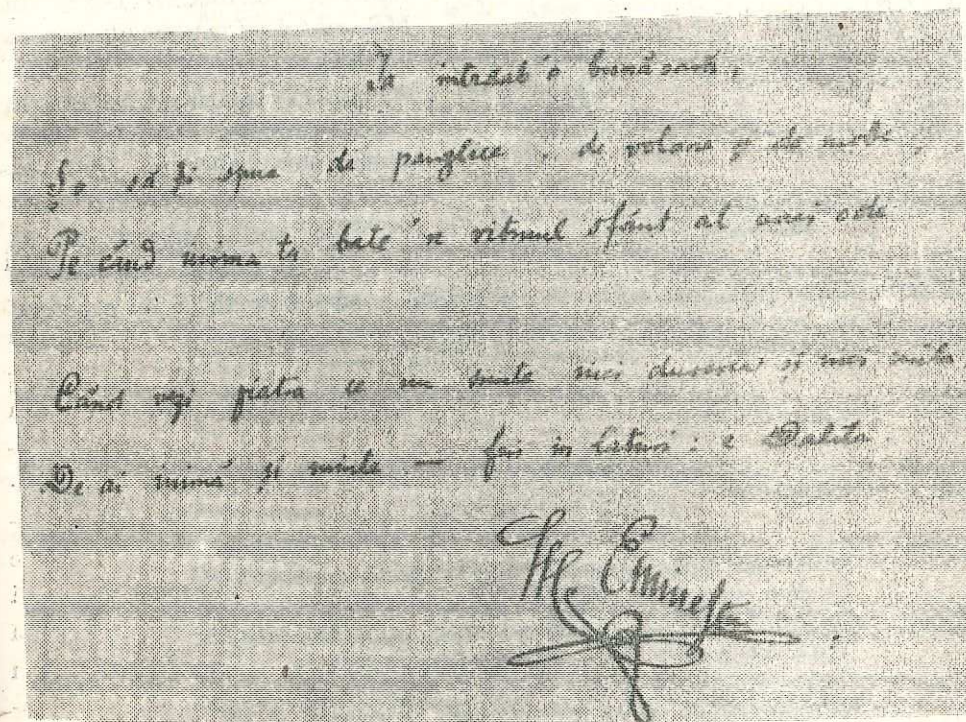 Ia intreab'o bunăoară,
Ș'o să ți spue de panglice, de volane și de mode,
Pe când inima ta bate 'n ritmul sfânt al unei ode
Când vezi piatra ce nu simte nici durerea și nici mila
De ai inimă și minte — feri in laturi : e Dalila
M. Eminescu